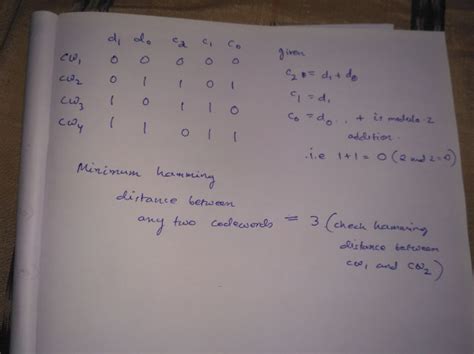 d1 d0 c2 c1 c0
cw1 0 0 0 0 0
cw2 0 1 1 0 1
cw3 1 0 1 1 0
cw4 1 1 0 1 1
given
c2 = d1 + d0
c1 = d1
c0 = d0 .. + is modulo-2
addition.
i.e 1+1 = 0 (2 mod 2=0)
Minimum hamming
distance between
any two codewords = 3 (check hamming
distance between
cw1 and cw2)